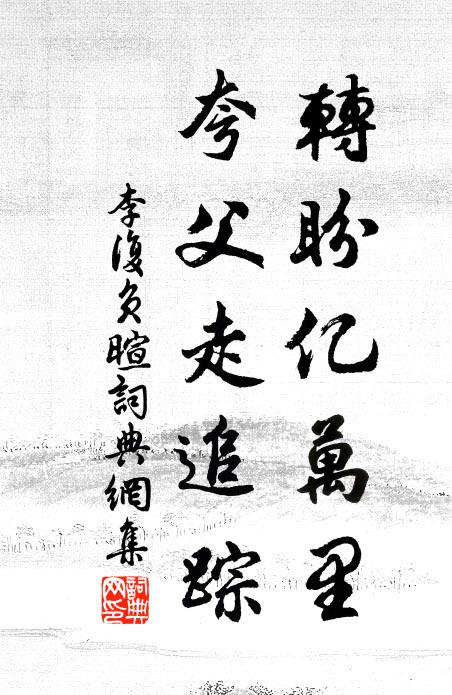 轉盼亿萬里
夸父走追踪
李復负暄詞典網集
詞典网印